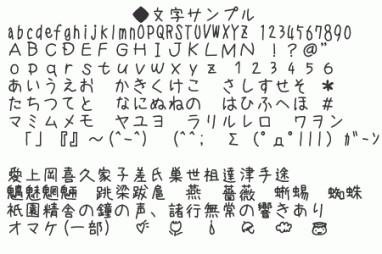 ◆文字サンプル
abcdefghijklmnOPQRSTUVWXYZ 1234567890
ABCDEFGHIJKLMN !?@"
opqrstuvwxyz 123456
あいうえお かきくけこ さしすせそ *
たちつてと なにぬねの はひふへほ #
マミムメモ ヤユヨ ラリルレロ ワヲン
「」『』～(^-^) (^^; Σ(ﾟдﾟlll) ガーン
愛上岡喜久家子差氏巣世祖達津手途
魑魅魍魎 跳梁跋扈 燕 薔薇 蜥蜴 蜘蛛
祇園精舎の鐘の声、諸行無常の響きあり
オマケ(一部)